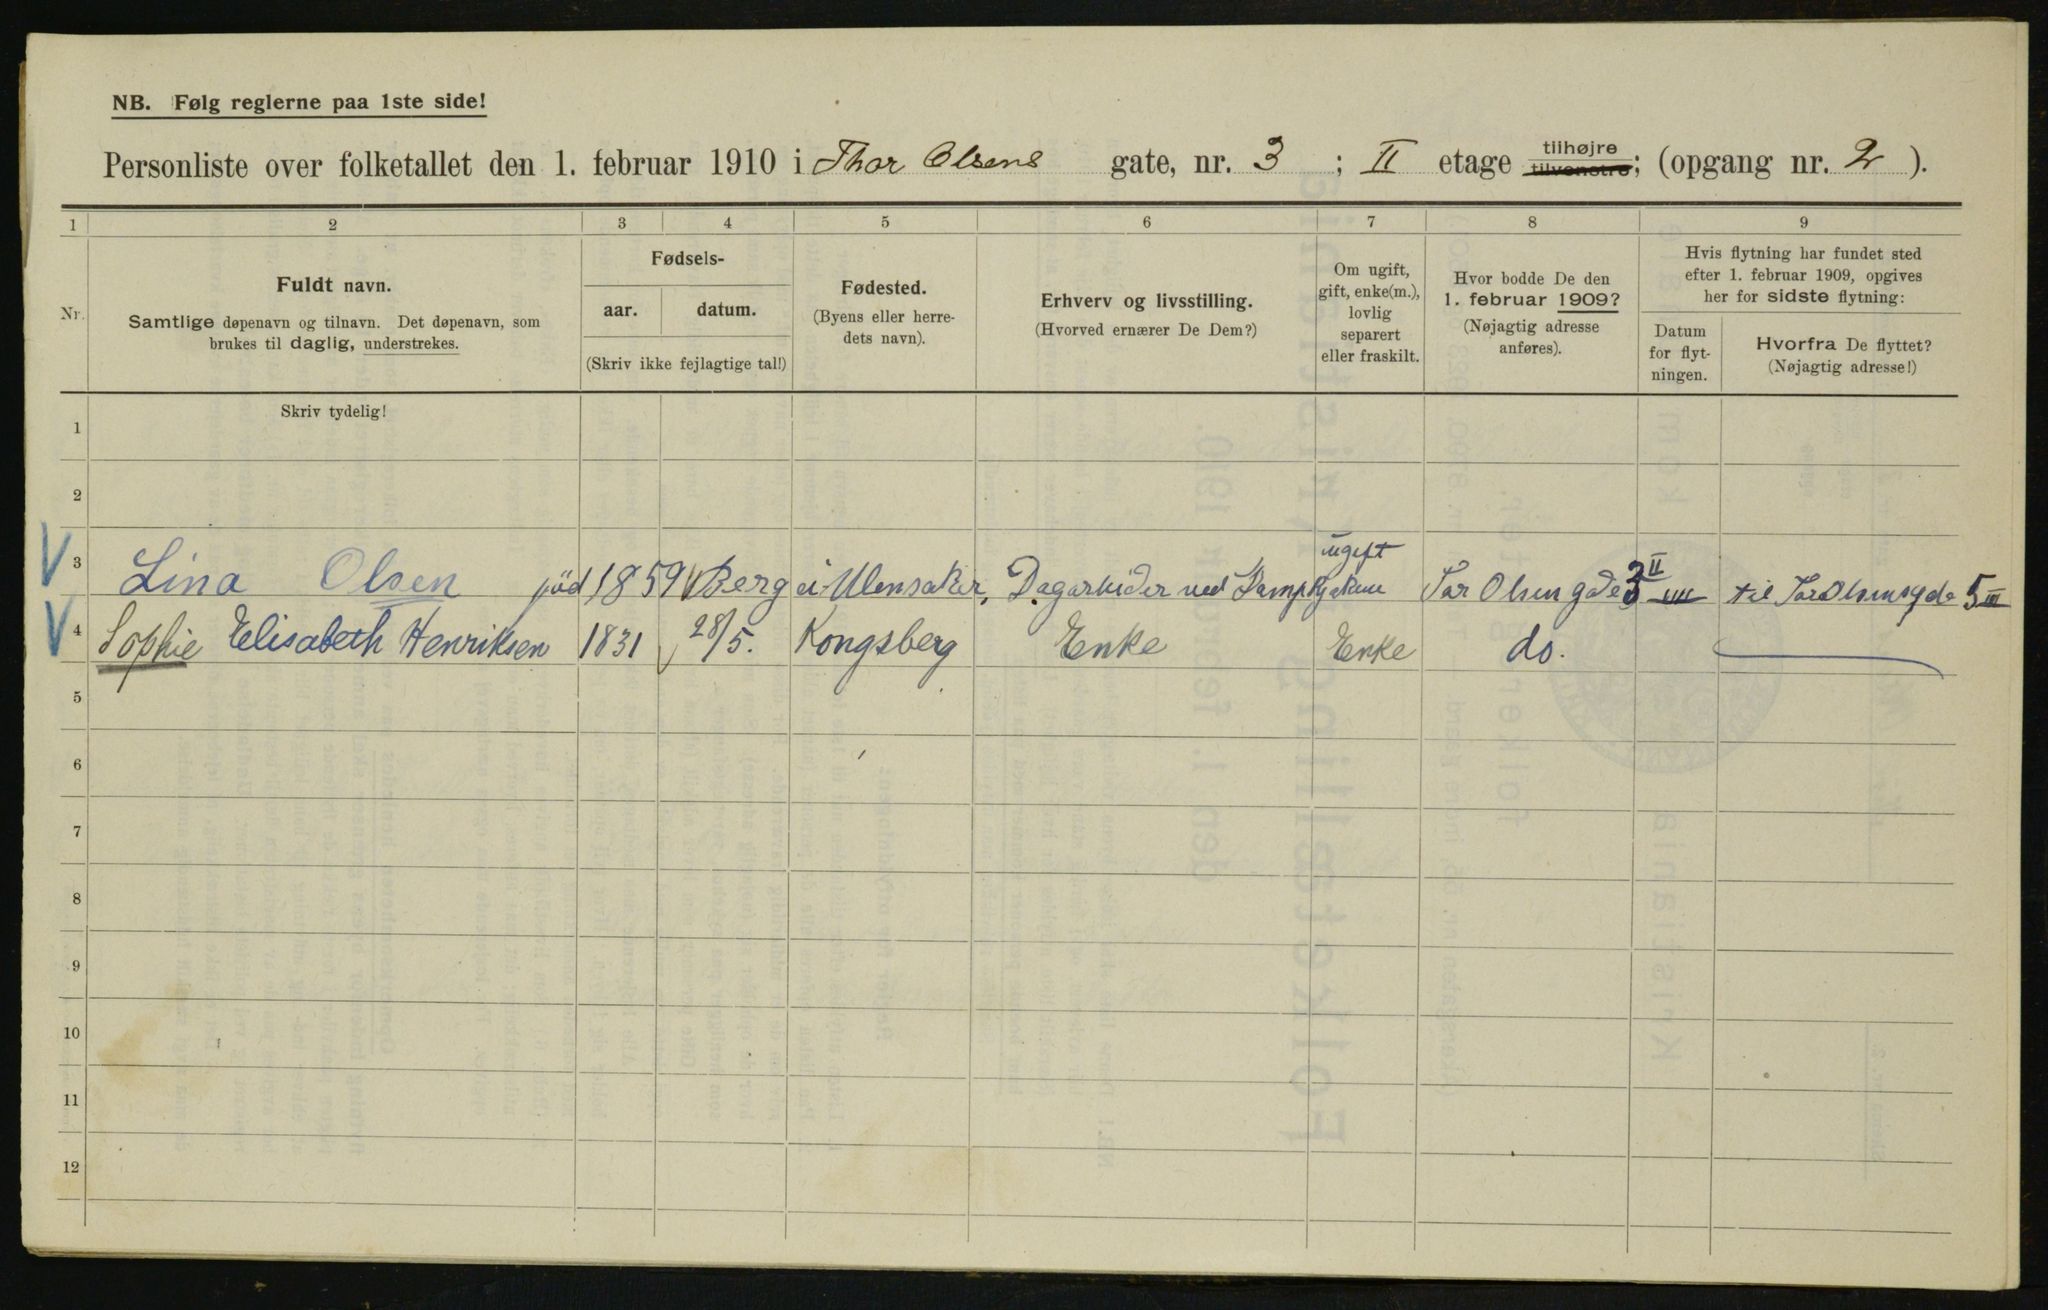 NB. Følg reglerne paa 1ste side!
Personliste over folketallet den 1. februar 1910 i Thor Olsens gate, nr. 3 ; II etage tilhøjre tilvenstre; (opgang nr. 2 ).
1 2 3 4 5 6 7 8 9
Nr.
Fuldt navn.
Samtlige døpenavn og tilnavn. Det døpenavn, som
brukes til daglig, understrekes.
Fødsels-
aar. datum.
(Skriv ikke fejlagtige tal!)
Fødested.
(Byens eller herre-
dets navn).
Erhverv og livsstilling.
(Hvorved ernærer De Dem?)
Om ugift,
gift, enke(m.),
lovlig
separert
eller fraskilt.
Hvor bodde De den
1. februar 1909?
(Nøjagtig adresse
anføres).
Hvis flytning har fundet sted
efter 1. februar 1909, opgives
her for sidste flytning:
Datum
for flyt-
ningen.
Hvorfra De flyttet?
(Nøjagtig adresse!)
Skriv tydelig!
1
2
3 Lina Olsen föd 1859 Berg i Ulensaker, Dagarbider ved ugift Tor Olsen gade 3 II til Tor Olsensgde 5 III
4 Sophie Elisabeth Henriksen 1831 28/5. Kongsberg Enke Enke do.
5
6
7
8
9
10
11
12